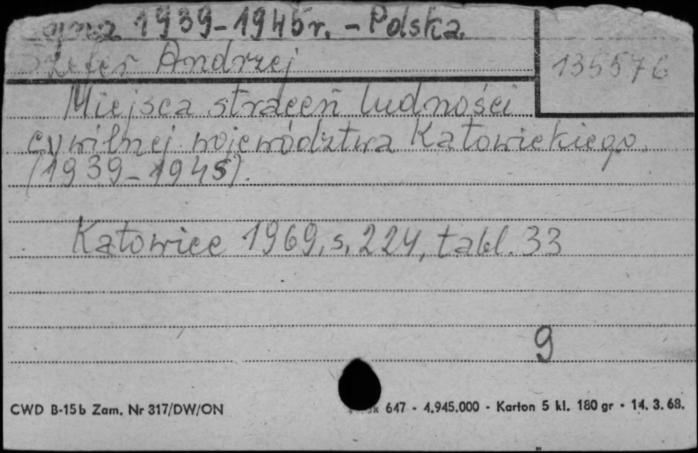 1939-1945r. - Polska.
Szefer Andrzej
135576
Miejsca straceń ludności
cywilnej województwa Katowickiego.
(1939-1945).
Katowice 1969, s. 224, tabl. 33
9
CWD B-15b Zam. Nr 317/DW/ON
647 - 4.945.000 - Karton 5 kl. 180 gr - 14. 3. 68.